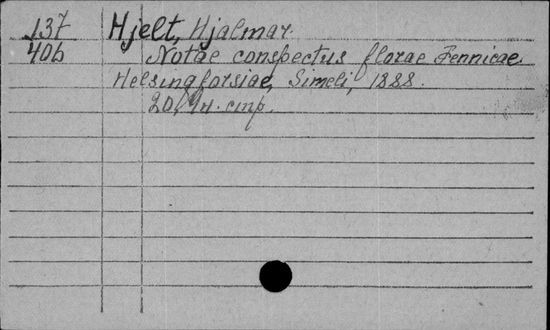 137 Hjelt, Hjalmar.
406 Notae conspectus florae Fennicae.
Helsingforsiae, Simeli, 1888.
20, стр.